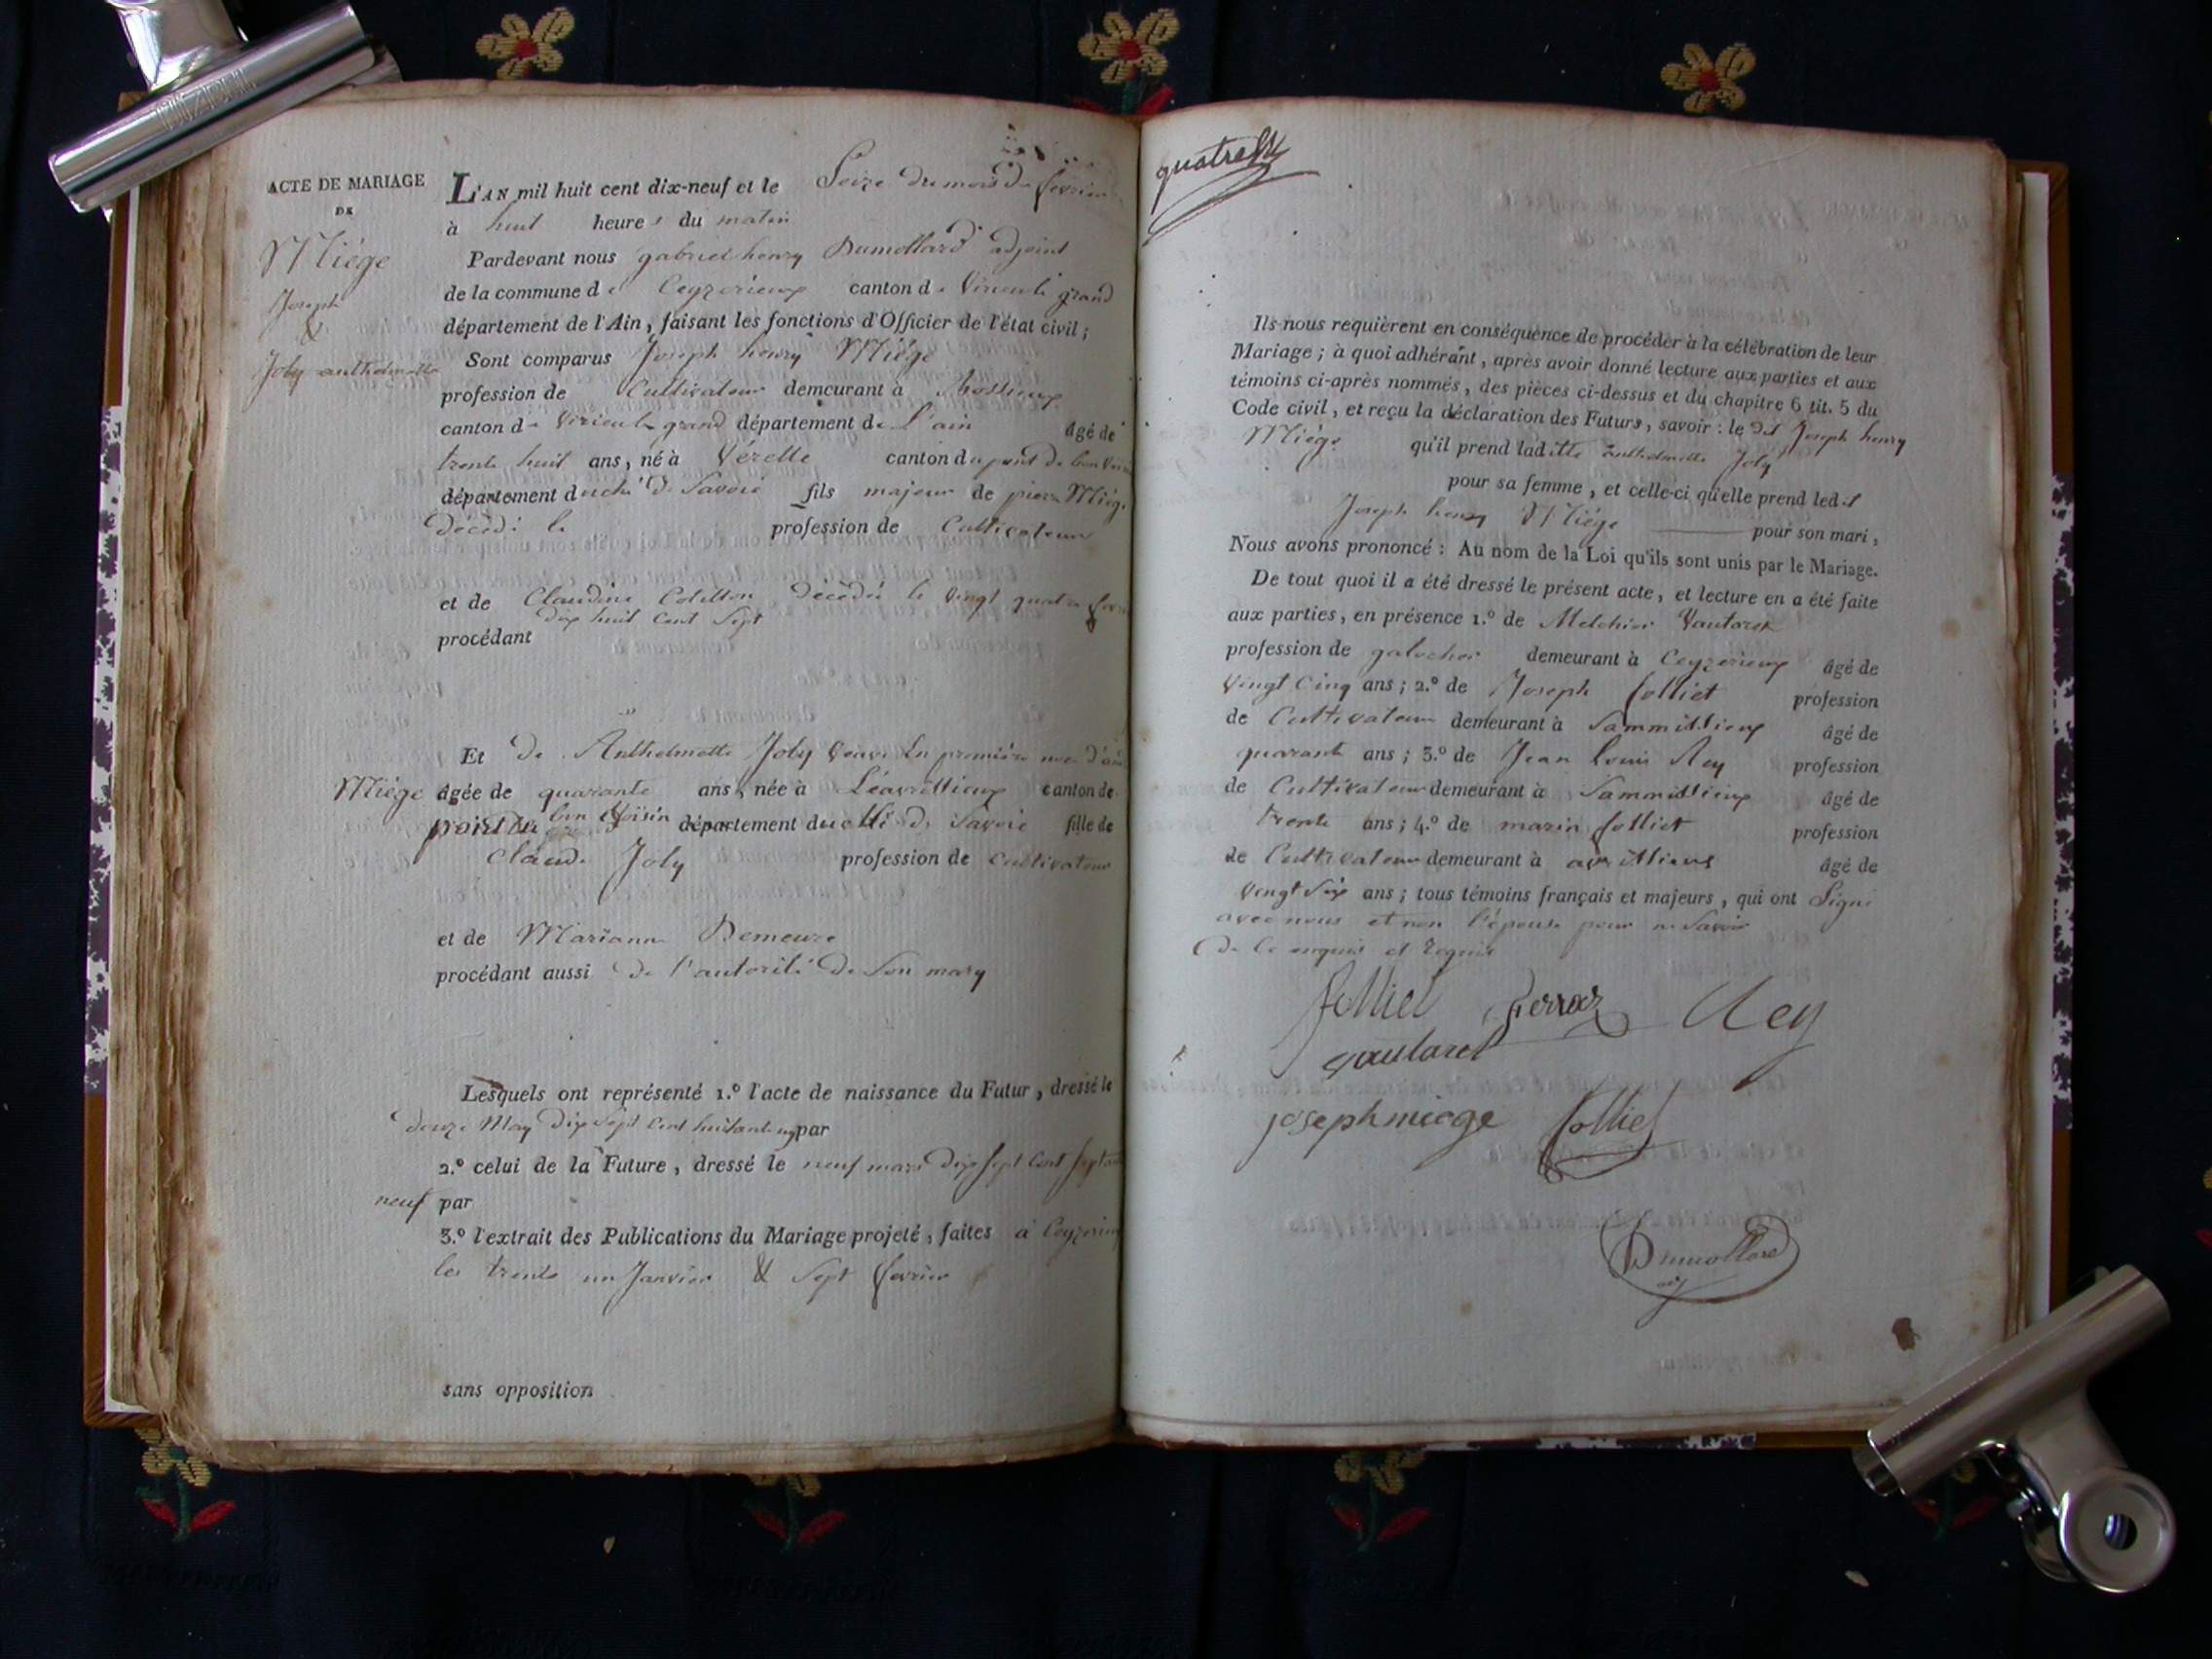 ACTE DE MARIAGE
DE
Miége
Joseph
&
Joly anthelmette
L'AN mil huit cent dix-neuf et le Seize du mois de fevrier
à huit heures du matin
Pardevant nous gabriel henry Dumollard adjoint
de la commune de Ceyzerieux canton de Virieu le grand
département de l'Ain, faisant les fonctions d'Officier de l'état civil;
Sont comparus Joseph henry Miége
profession de Cultivateur demeurant à
canton de Virieu le grand département de L'ain âgé de
trente huit ans, né à Vérelle canton du pont de bon Voisin
département duché de Savoie fils majeur de pierre Miége
décédé le profession de Cultivateur
et de Claudine décédée le vingt quatre
dix huit cent Sept
procédant
Et de Anthelmette Joly veuve en première
Miége âgée de quarante ans, née à canton de
pont de bon Voisin département duché de Savoie fille de
claude Joly profession de cultivateur
et de Marianne Demeure
procédant aussi de l'autorité de Son mary
Lesquels ont représenté 1.º l'acte de naissance du Futur, dressé le
douze May dix Sept Cent huitante un par
2.º celui de la Future, dressé le neuf mars dix Sept Cent Septante
neuf par
3.º l'extrait des Publications du Mariage projeté, faites à Ceyzerieux
les trente un Janvier & Sept fevrier
sans opposition
Ils nous requièrent en conséquence de procéder à la célébration de leur
Mariage; à quoi adhérant, après avoir donné lecture aux parties et aux
témoins ci-après nommés, des pièces ci-dessus et du chapitre 6 tit. 5 du
Code civil, et reçu la déclaration des Futurs, savoir: le dit Joseph henry
Miége qu'il prend laditte anthelmette Joly
pour sa femme, et celle-ci qu'elle prend ledit
Joseph henry Miége pour son mari,
Nous avons prononcé: Au nom de la Loi qu'ils sont unis par le Mariage.
De tout quoi il a été dressé le présent acte, et lecture en a été faite
aux parties, en présence 1.º de Melchior Vautaret
profession de galocher demeurant à Ceyzerieux âgé de
vingt cinq ans; 2.º de Joseph folliet profession
de Cultivateur demeurant à Sammillieux âgé de
quarante ans; 3.º de Jean Louis Rey profession
de Cultivateur demeurant à Sammillieux âgé de
trente ans; 4.º de marin folliet profession
de Cultivateur demeurant à avrillieux âgé de
vingt Six ans; tous témoins français et majeurs, qui ont Signé
avec nous et non l'épouse pour ne Savoir
de ce enquis et requis
folliet Ferraz Rey
vautaret
joseph miege folliet
Dumollard
adj